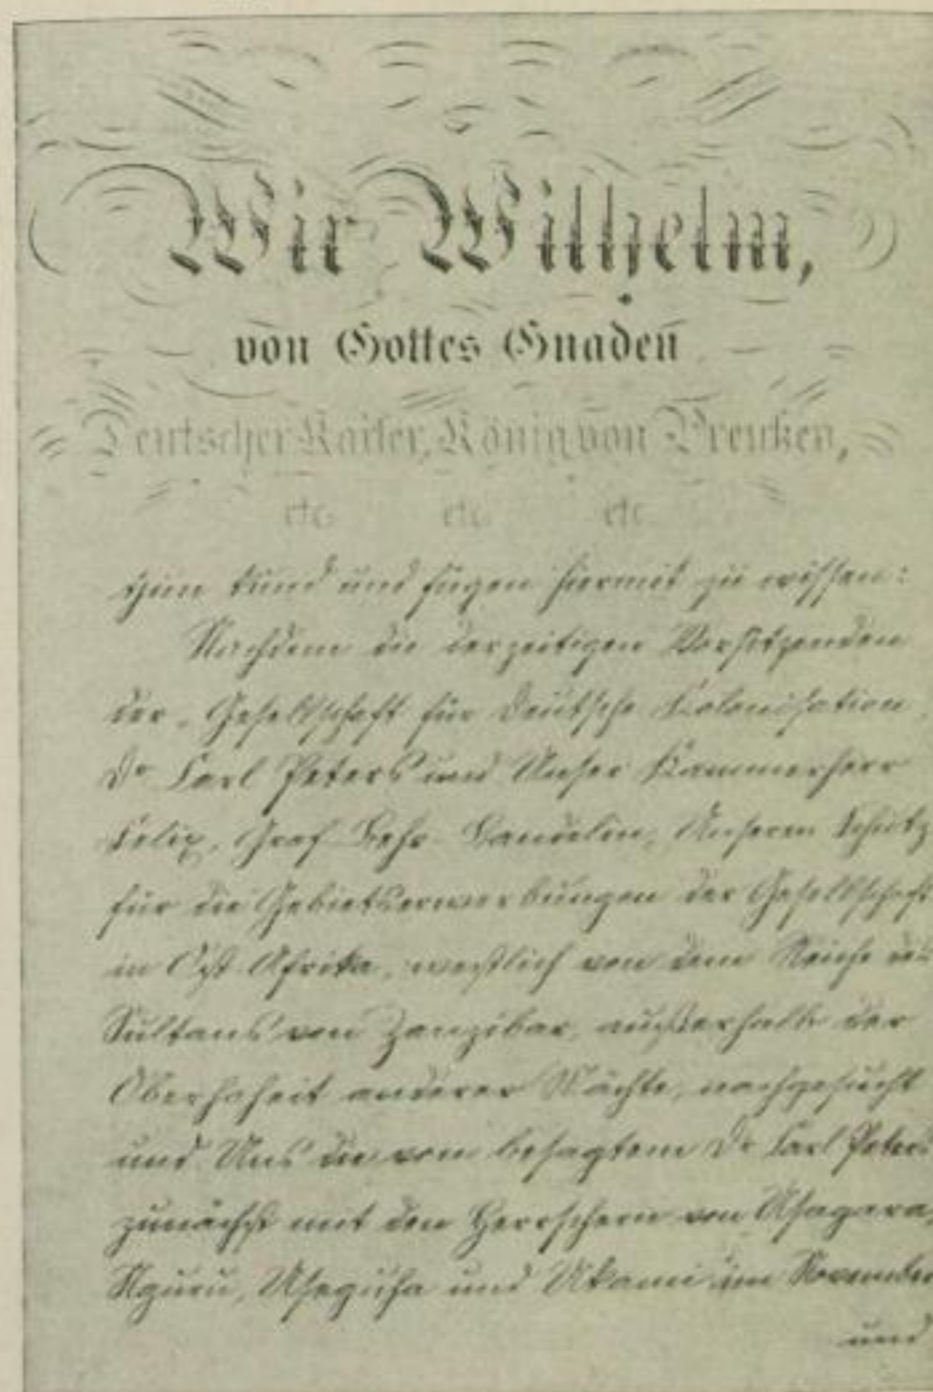 Wir Wilhelm,
von Gottes Gnaden
Deutscher Kaiser, König von Preußen,
etc. etc. etc.
thun kund und fügen hiermit zu wissen:
Nachdem die derzeitigen Vorsitzenden
der „Gesellschaft für deutsche Kolonisation
Dr Carl Peters und Unser Kammerherr
Felix, Graf Behr-Bandelin, Unseren Schutz
für die Gebietserwerbungen der Gesellschaft
in Ost Afrika, westlich von dem Reiche des
Sultans von Zanzibar, außerhalb der
Oberhoheit anderer Mächte, nachgesucht
und Uns die von besagtem Dr Carl Peters
zunächst mit den Herrschern von Usagara,
Nguru, Useguha und Ukami im November
und